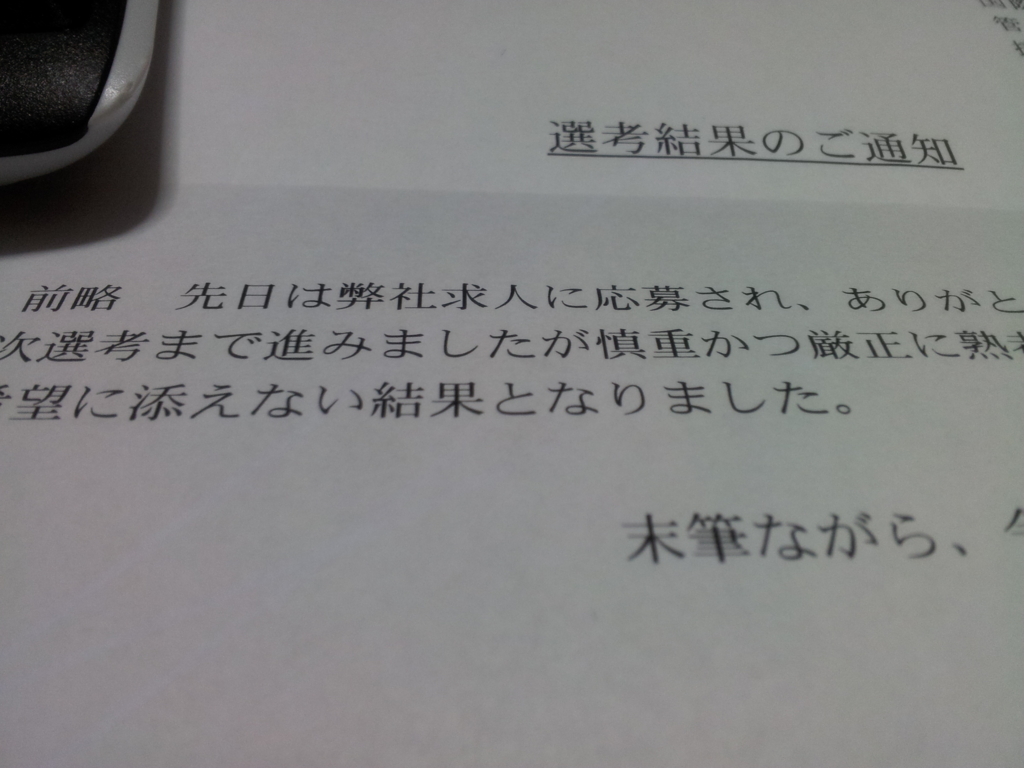 管
選考結果のご通知
前略　先日は弊社求人に応募され、ありがと
次選考まで進みましたが慎重かつ厳正に熟考
希望に添えない結果となりました。
末筆ながら、